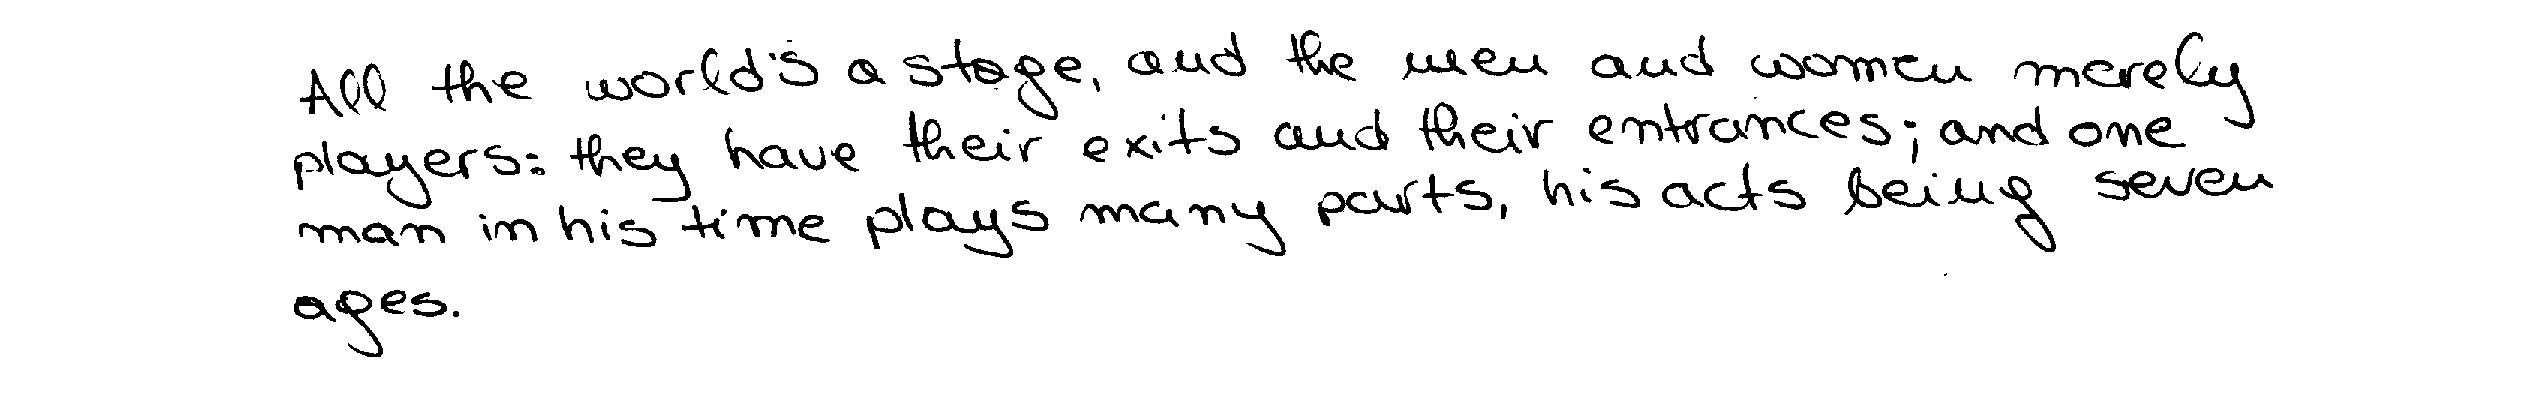 All the world's a stage, and the men and women merely
players: they have their exits and their entrances; and one
man in his time plays many parts, his acts being seven
ages.